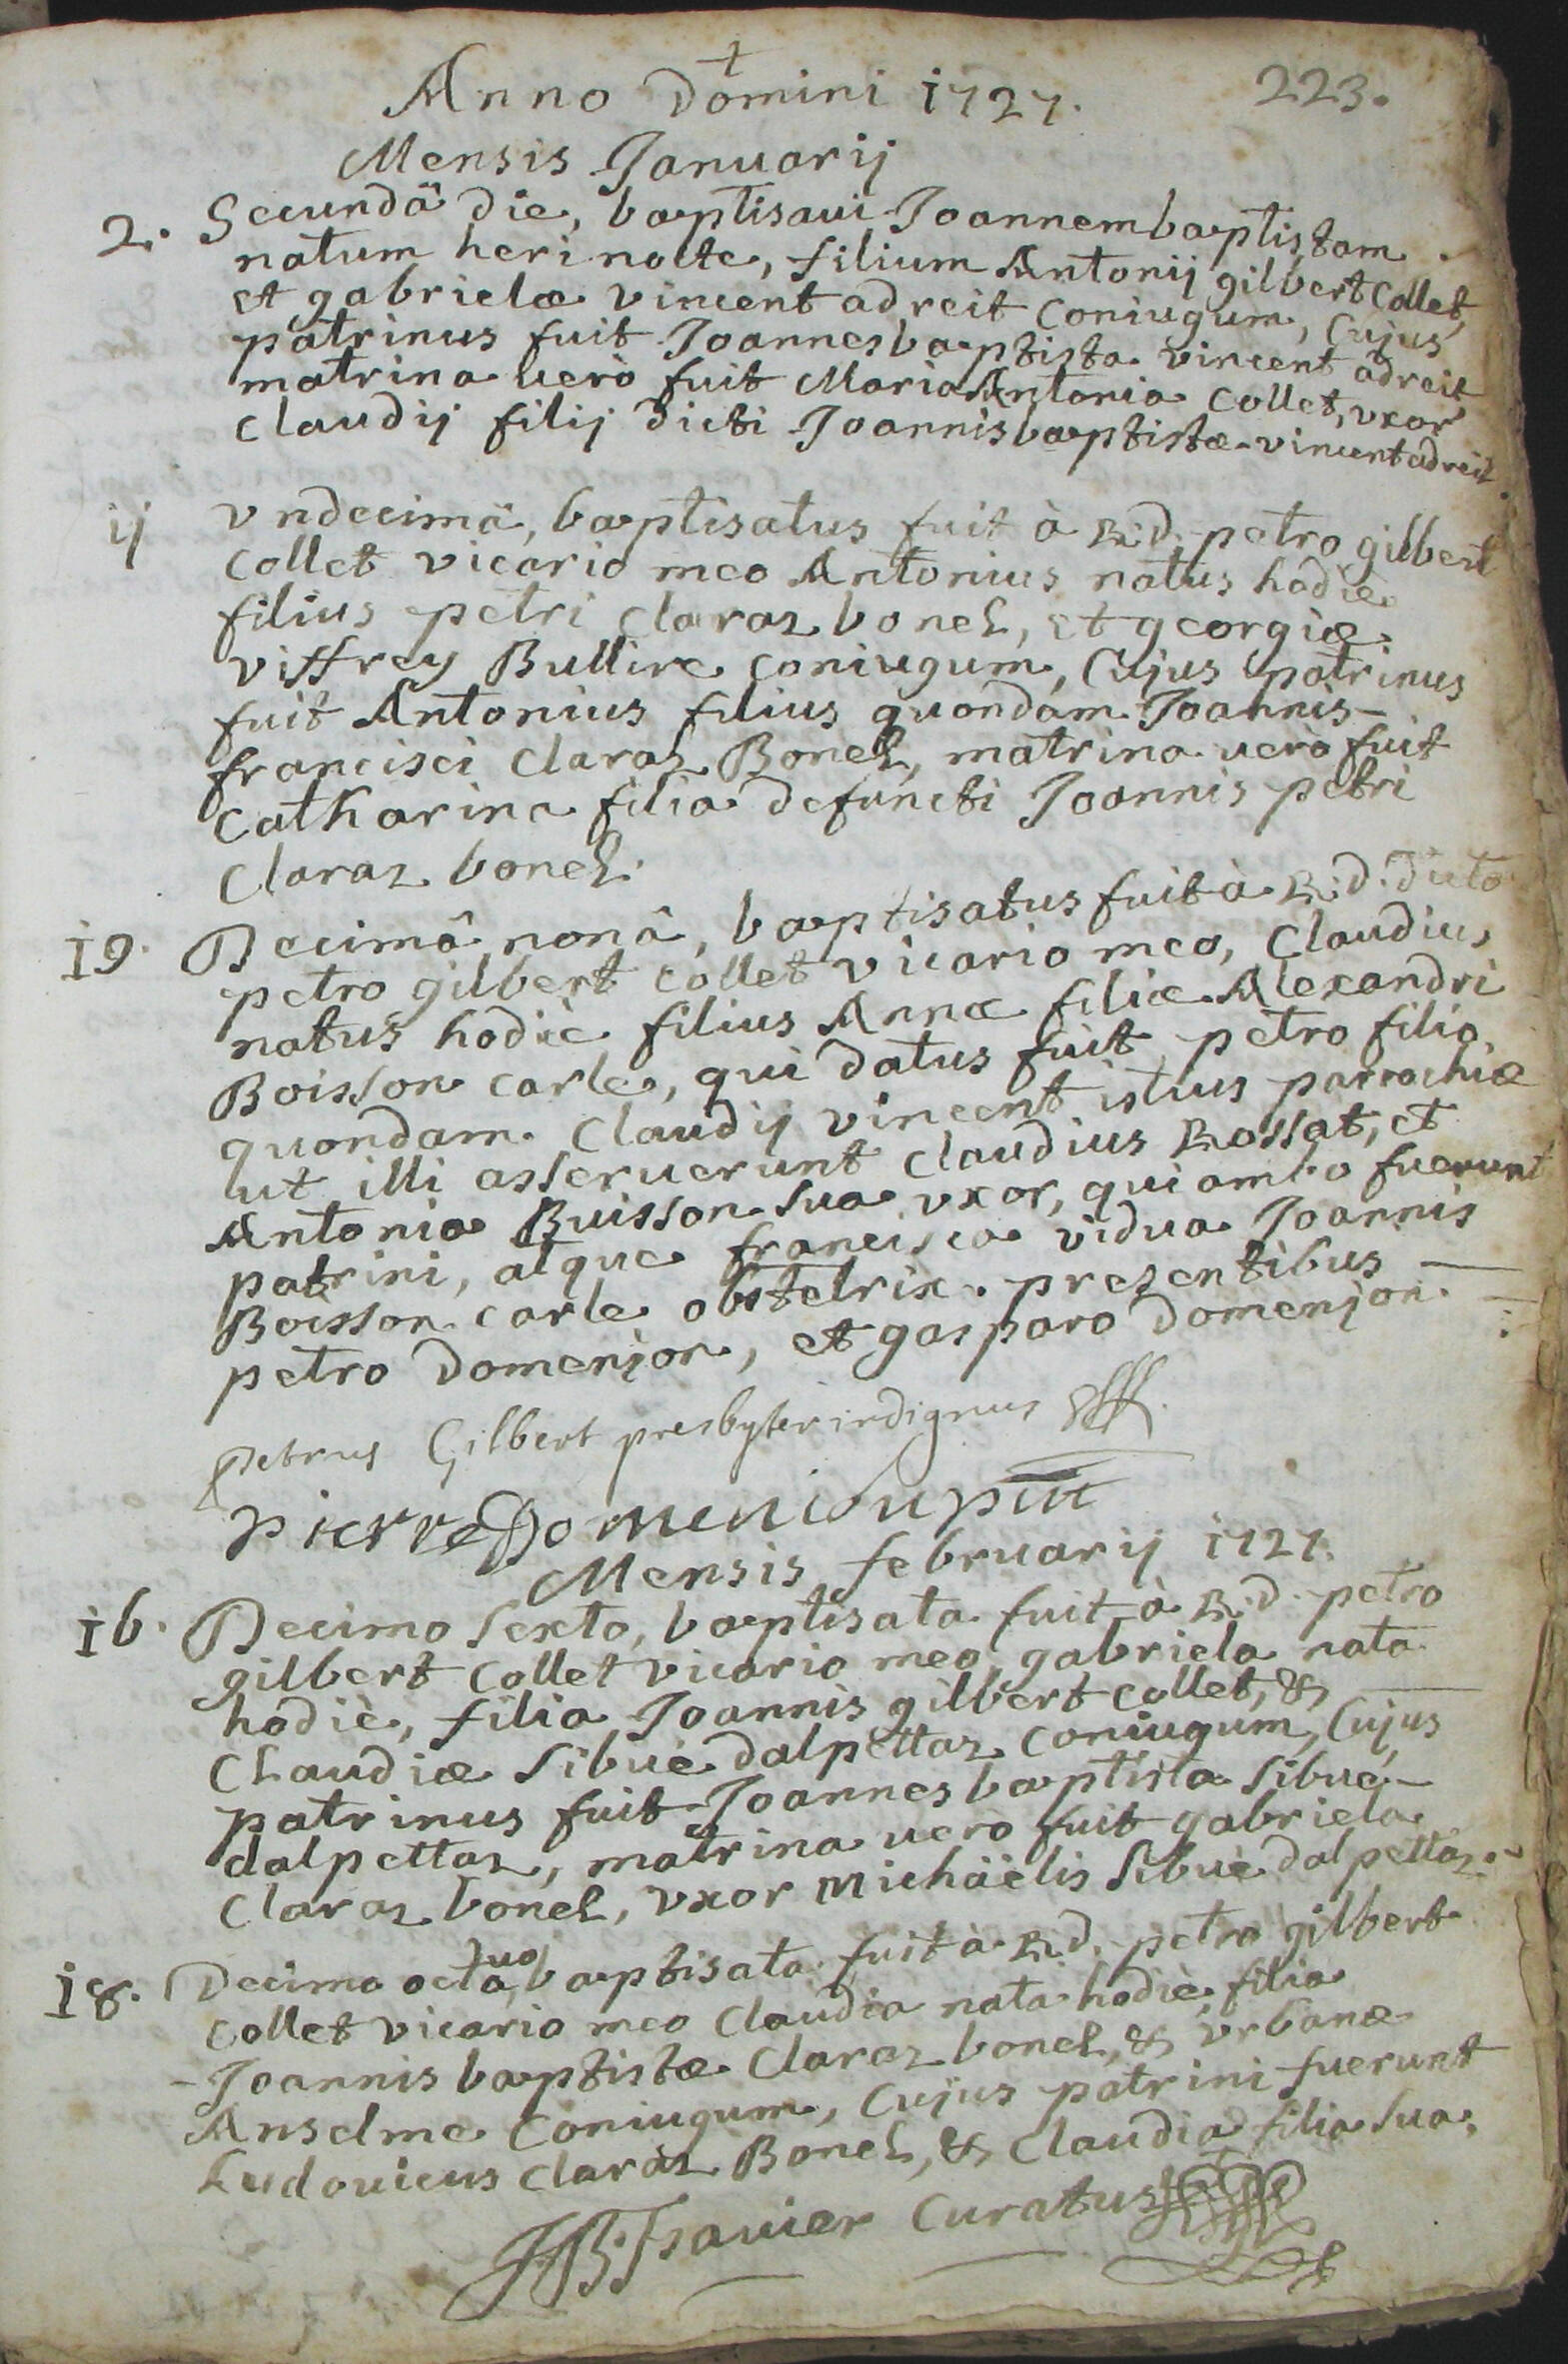 +
Anno Domini 1727. 223.
Mensis Januarij
2. Secundâ die, baptisaui Joannembaptistam
natum heri nocte, filium Antonij gilbert Collet,
et gabrielæ vincent adreit Coniugum, Cujus
patrinus fuit Joannesbaptista vincent adreit
matrina uerò fuit Maria Antonia Collet, vxor
Claudij filij dicti Joannisbaptistæ vincent adreit.
ij vndecimâ, baptisatus fuit à R.d. petro gilbert
Collet vicario meo Antonius natus hodiè
filius petri Claraz bonel, et georgiæ
Viffrey Bullire Coniugum, Cujus patrinus
fuit Antonius filius quondam Joannis-
francisci Claraz Bonel, matrina uerò fuit
Catharina filia defuncti Joannis petri
Claraz bonel.
19. Decimâ nonâ, baptisatus fuit à R.d. dicto
petro gilbert Collet vicario meo, Claudius
natus hodiè filius Annæ filiæ Alexandri
Boisson Carle, qui datus fuit petro filio
quondam Claudij vincent istius parrochiæ
ut illi asseruerunt Claudius Rossat, et
Antonia Buisson sua vxor, qui ambo fuerunt
patrini, atque francisca vidua Joannis
Boisson Carle obstetrix. presentibus
petro domenjon, et gasparo domenjon.
Petrus Gilbert presbyter indignus
pierre Domeniou
Mensis februarij 1727.
16. Decimo sexto, baptisata fuit à R.d. petro
gilbert Collet vicario meo gabriela nata
hodiè, filia Joannis gilbert Collet, &
Claudiæ Sibué dalpettaz Coniugum, Cujus
patrinus fuit Joannesbaptista Sibué-
dalpettaz, matrina uerò fuit gabriela
Claraz bonel, vxor Michäelis Sibué dalpettaz.
18. Decimo octauo, baptisata fuit à R.d. petro gilbert
Collet vicario meo Claudia nata hodiè, filia
Joannis baptistæ Claraz bonel, & vrbanæ
Anselme Coniugum, Cujus patrini fuerunt
Ludouicus Claraz Bonel, & Claudia filia sua.
Curatus